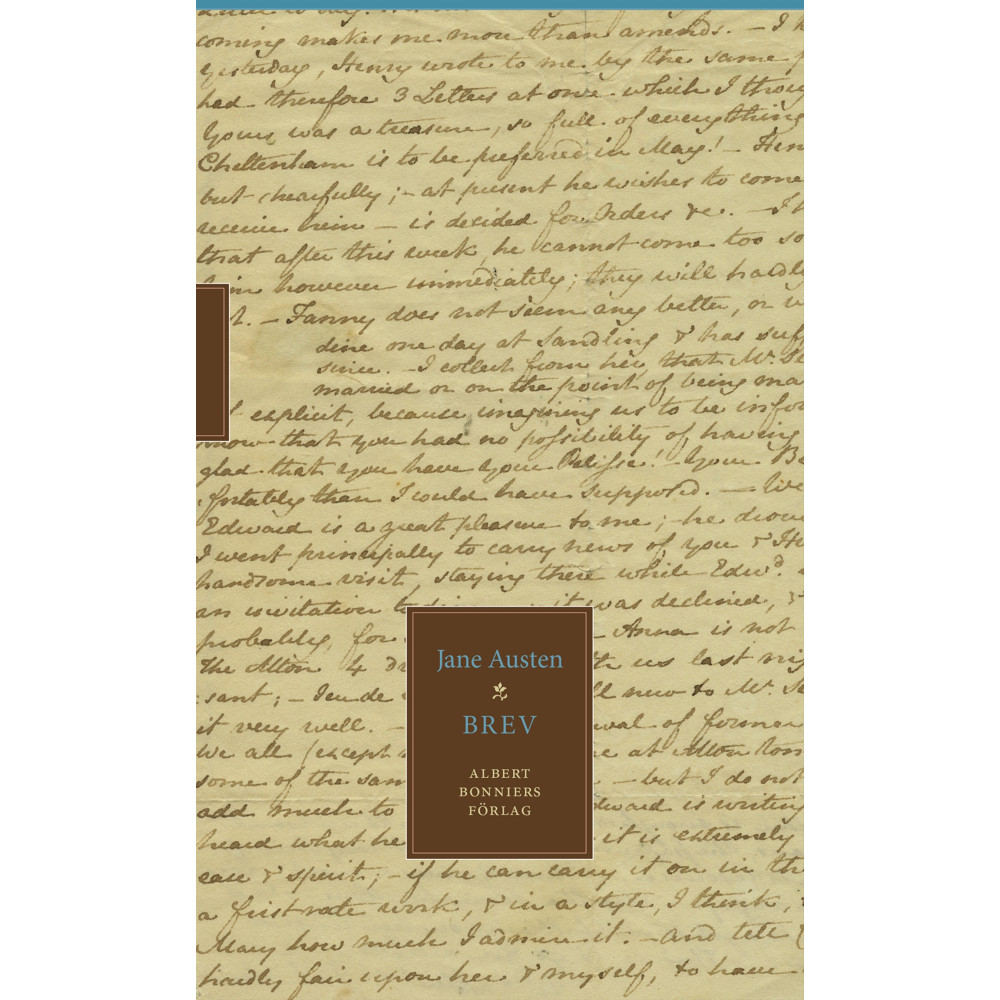 coming makes me more than amends. — I h
yesterday, Henry wrote to me by the same p
had therefore 3 Letters at once which I thoug
Yours was a treasure, so full of everything
Cheltenham is to be preferred in May! — Hen
but chearfully; — at present he wishes to come
receive him — is decided for Orders &c. — I h
that after this week, he cannot come too so
him however immediately; they will hardly
t. — Fanny does not seem any better, or v
dine one day at Sandling & has suff
since. — I collect from her, that Mr. Se
married or on the point of being ma
t explicit, because imagining us to be infor
know that you had no possibility of having
glad that you have your Pelisse! — Your Be
fortably than I could have supposed. — We
Edward is a great pleasure to me; — he drove
I went principally to carry news of you & He
handsome visit, staying there while Edwd.
an invitation to it was declined, &
probably, for — Anna is not
the Alton 4 th us last nig
sant; — ll new to Mr. Se
it very well. — wal of former
We all (except e at Alton
some of the sam — but I do not
add much to dward is writing
heard what he it is extremely
ease & spirit; — if he can carry it on in th
a first-rate work, & in a style, I think,
Mary how much I admire it. — and tell
hardly fair upon her & myself, to have
Jane Austen
BREV
ALBERT
BONNIERS
FÖRLAG